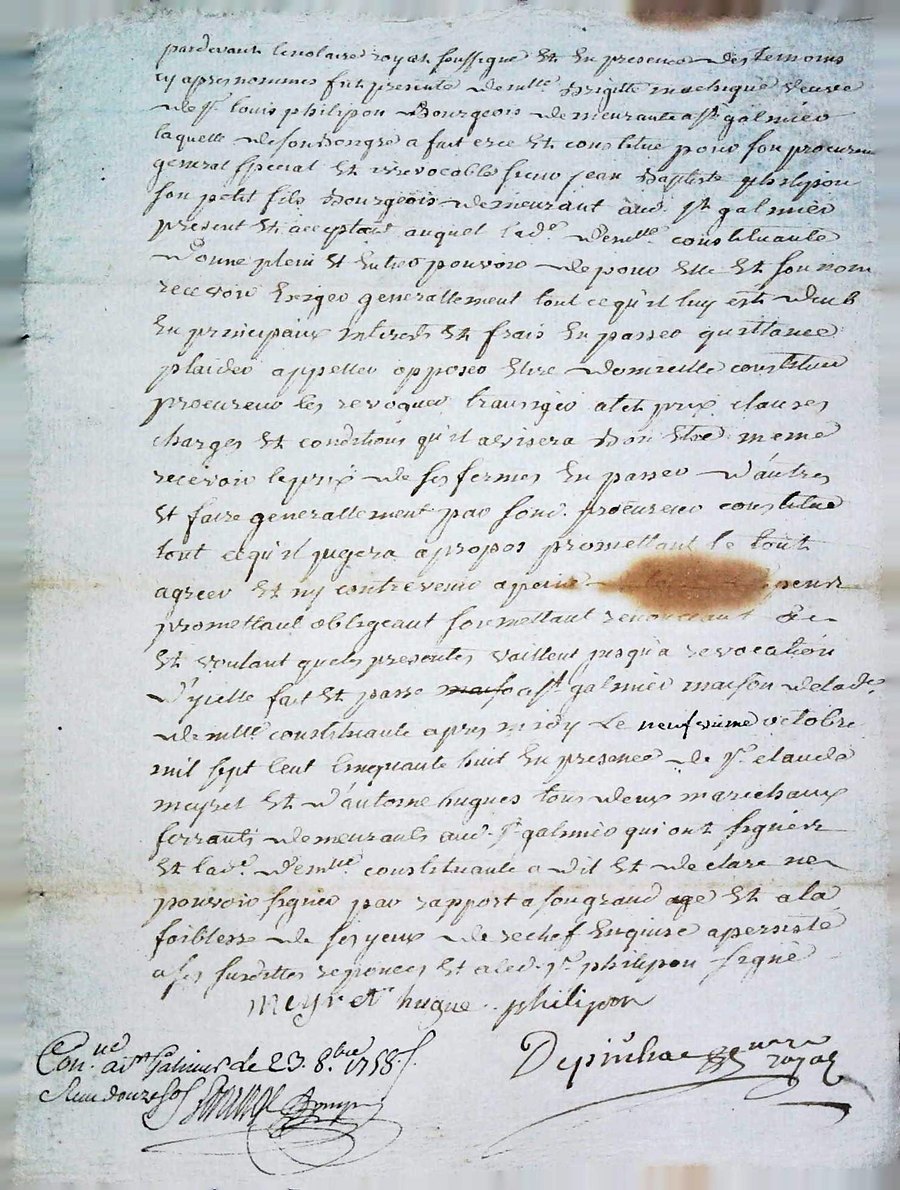 pardevant le notaire royal soussigné Et En presence des temoins
cy apres nommes fut presente demlle Brigitte machigué veuve
de Sr. louis philipon Bourgeois demeurante a St galmier
laquelle de son bon gre a fait cree Et constitue pour son procureur
general special Et irrevocable sieur jean Baptiste philipon
son petit fils Bourgeois demeurant aud. St galmier
present Et acceptant auquel lade. demlle. constituante
donne plein Et Entier pouvoir de pour Elle Et son nom
recevoir Exiger generallement tout ce qu'il luy est deub
En principaux interets Et frais En passer quittance
plaider appeller opposer Elire domicille constituer
procureur les revoquer transiger a tel prix clauses
charges Et conditions qu'il advisera Bon Etre meme
recevoir le prix de ses fermes En passer d'autres
Et faire generallement par sond. procureur constitué
tout ce qu'il jugera a propos promettant le tout
agreer Et ny contrevenir a peine
promettant obligeant soumettant renonceant &c
Et voulant que les presentes vaillent jusqu'a revocation
d'ycelle fait Et passé a St galmier maison de lade.
demlle. constituante apres midy le neufvieme octobre
mil sept cent cinquante huit En presence de Sr. claude
meyret Et d'antoine hugues tous deux marechaux
ferrants demeurants aud. St. galmier qui ont signéz
Et lade. demlle. constituante a dit Et declare ne
pouvoir signer par rapport a son grand age Et a la
foiblesse de ses yeux de rechef Enquise a persisté
a ses susdittes reponces Et a led. Sr. philipon signé
Meyret hugue. philipon
Depinhac nore royal
Conné. a St Galmier le 23. 8bre 1758.
Reçu douze sols